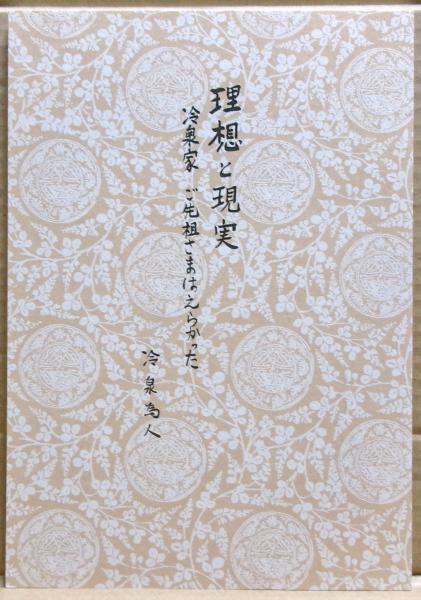 理想と現実
冷泉家 ご先祖さまはえらかった
冷泉為人